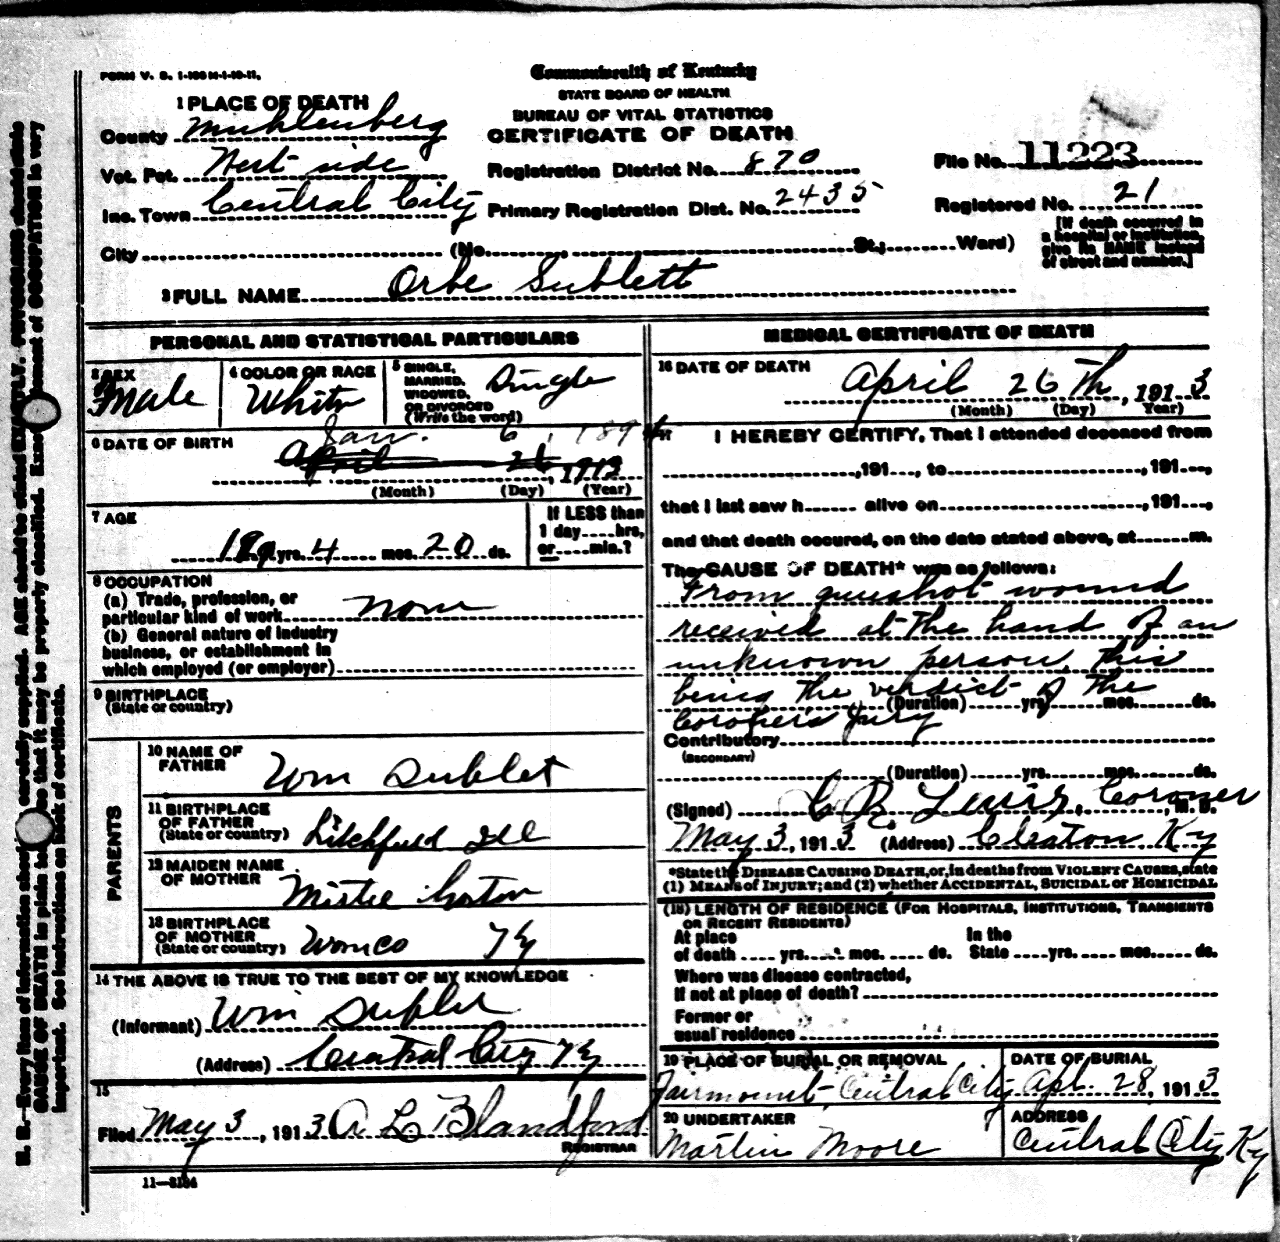 FORM V. S. 1-100 M-1-10-11.
Commonwealth of Kentucky
STATE BOARD OF HEALTH
BUREAU OF VITAL STATISTICS
CERTIFICATE OF DEATH
1 PLACE OF DEATH
County Muhlenberg
Vot. Pct. West side
Inc. Town Central City
City (No. St.; Ward)
Registration District No. 870
Primary Registration Dist. No. 2435
File No. 11223
Registered No. 21
[If death occurred in
a hospital or institution,
give its NAME instead
of street and number.]
2 FULL NAME Orbe Sublett
PERSONAL AND STATISTICAL PARTICULARS
3 SEX
Male
4 COLOR OR RACE
White
5 SINGLE,
MARRIED,
WIDOWED,
OR DIVORCED
(Write the word)
Single
6 DATE OF BIRTH
Jan. 6, 189
April 26, 1913
(Month) (Day) (Year)
7 AGE
19 yrs. 4 mos. 20 ds.
If LESS than
1 day hrs.
or min.?
8 OCCUPATION
(a) Trade, profession, or
particular kind of work None
(b) General nature of industry
business, or establishment in
which employed (or employer)
9 BIRTHPLACE
(State or country)
PARENTS
10 NAME OF
FATHER Wm Sublet
11 BIRTHPLACE
OF FATHER
(State or country) Litchfield Ill
12 MAIDEN NAME
OF MOTHER
13 BIRTHPLACE
OF MOTHER
(State or country) Ky
14 THE ABOVE IS TRUE TO THE BEST OF MY KNOWLEDGE
(Informant) Wm
(Address) Central City Ky
15
Filed May 3, 1913 A L Blandford
REGISTRAR
11—3184
MEDICAL CERTIFICATE OF DEATH
16 DATE OF DEATH
April 26 Th, 1913
(Month) (Day) Year)
17 I HEREBY CERTIFY, That I attended deceased from
, 191 , to , 191 ,
that I last saw h alive on , 191 ,
and that death occured, on the date stated above, at m.
The CAUSE OF DEATH* was as follows:
From gunshot wound
received at The hand of an
unknown person, this
being the verdict of The
(Duration) yrs. mos. ds.
Coroner's Jury
Contributory
(SECONDARY)
(Duration) yrs. mos. ds.
(Signed) C R Lewis, Coroner, M. D.
May 3, 1913 (Address) Cleaton Ky
*State the DISEASE CAUSING DEATH, or, in deaths from VIOLENT CAUSES, state
(1) MEANS of INJURY; and (2) whether ACCIDENTAL, SUICIDAL or HOMICIDAL
(18) LENGTH OF RESIDENCE (FOR HOSPITALS, INSTITUTIONS, TRANSIENTS
OR RECENT RESIDENTS)
At place In the
of death yrs. mos. ds. State yrs. mos. ds.
Where was disease contracted,
If not at place of death?
Former or
usual residence
19 PLACE OF BURIAL OR REMOVAL
Fairmount-Central City
DATE OF BURIAL
Apl. 28, 1913
20 UNDERTAKER
Martin Moore
ADDRESS
Central City Ky
N. B.—Every item of information should be carefully supplied. AGE should be stated EXACTLY. PHYSICIANS should state
CAUSE OF DEATH in plain terms, so that it may be properly classified. Exact statement of OCCUPATION is very
important. See instructions on back of certificate.